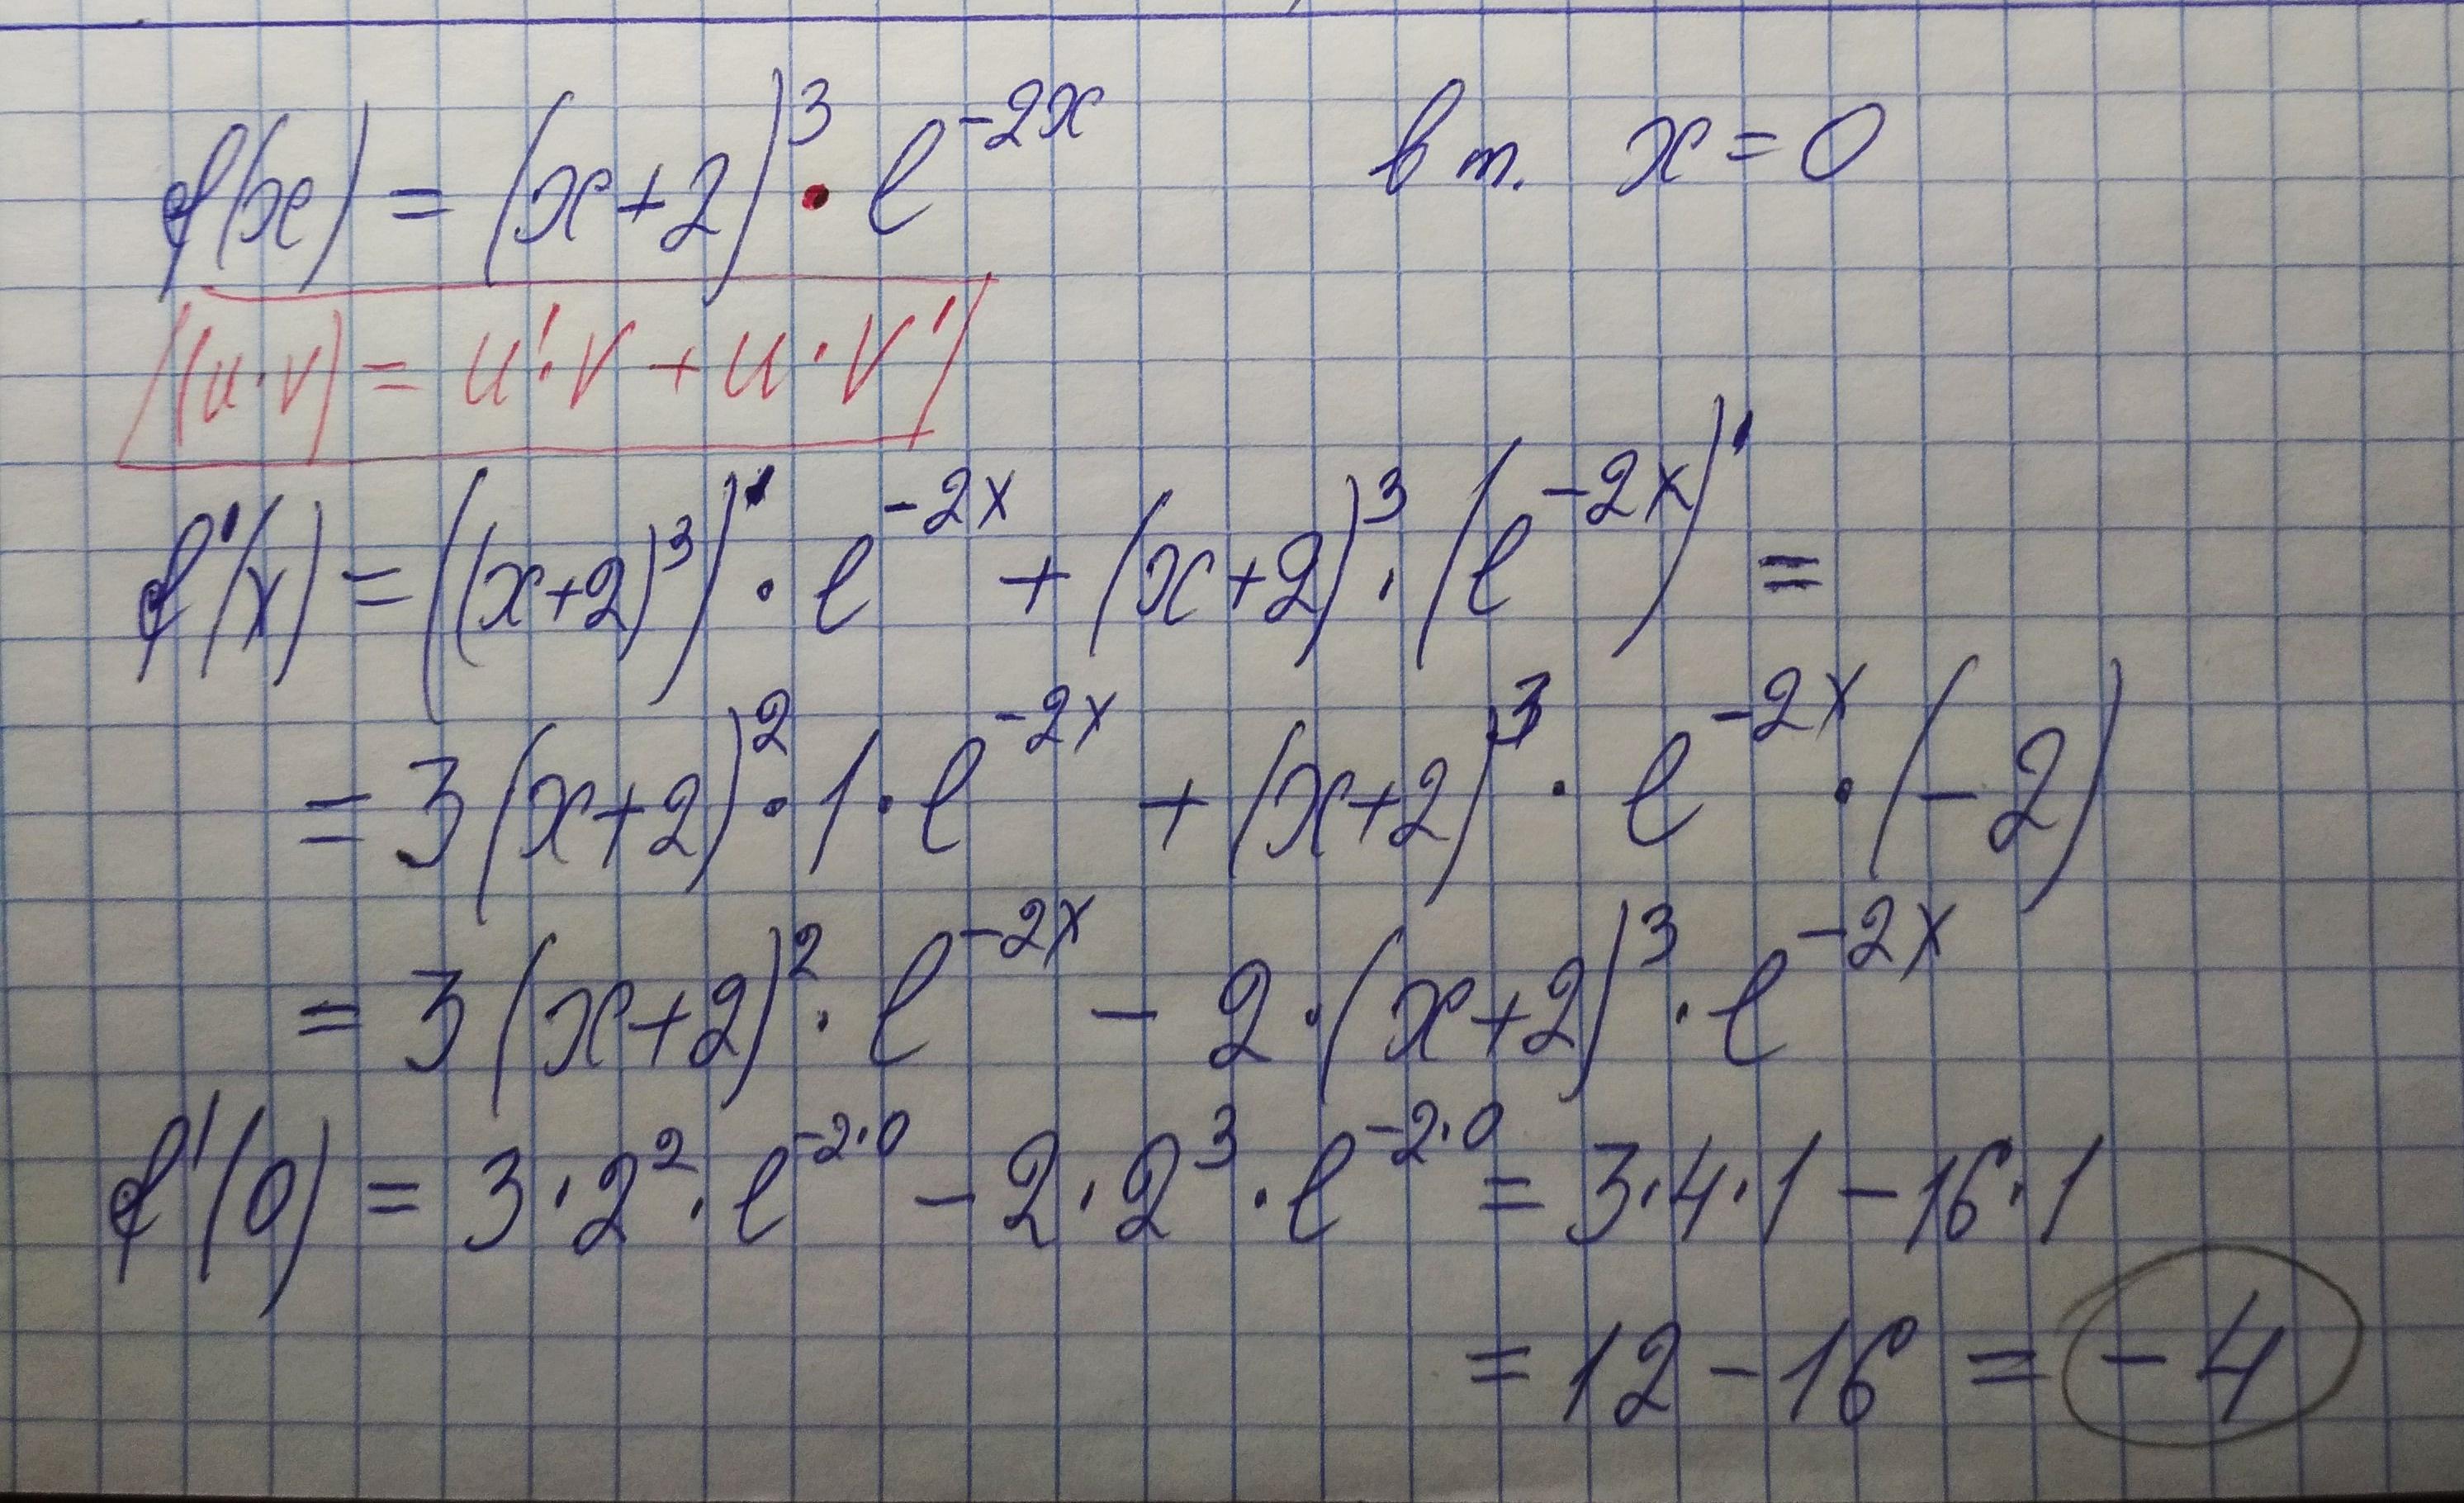 f(x) = (x+2)³ · e⁻²ˣ в т. x = 0
(u·v) = u'·v + u·v'
f'(x) = ((x+2)³)' · e⁻²ˣ + (x+2)³ · (e⁻²ˣ)' =
= 3(x+2)² · 1 · e⁻²ˣ + (x+2)³ · e⁻²ˣ · (-2)
= 3(x+2)² · e⁻²ˣ - 2 · (x+2)³ · e⁻²ˣ
f'(0) = 3 · 2² · e⁻²·⁰ - 2 · 2³ · e⁻²·⁰ = 3·4·1 - 16·1
= 12 - 16 = -4